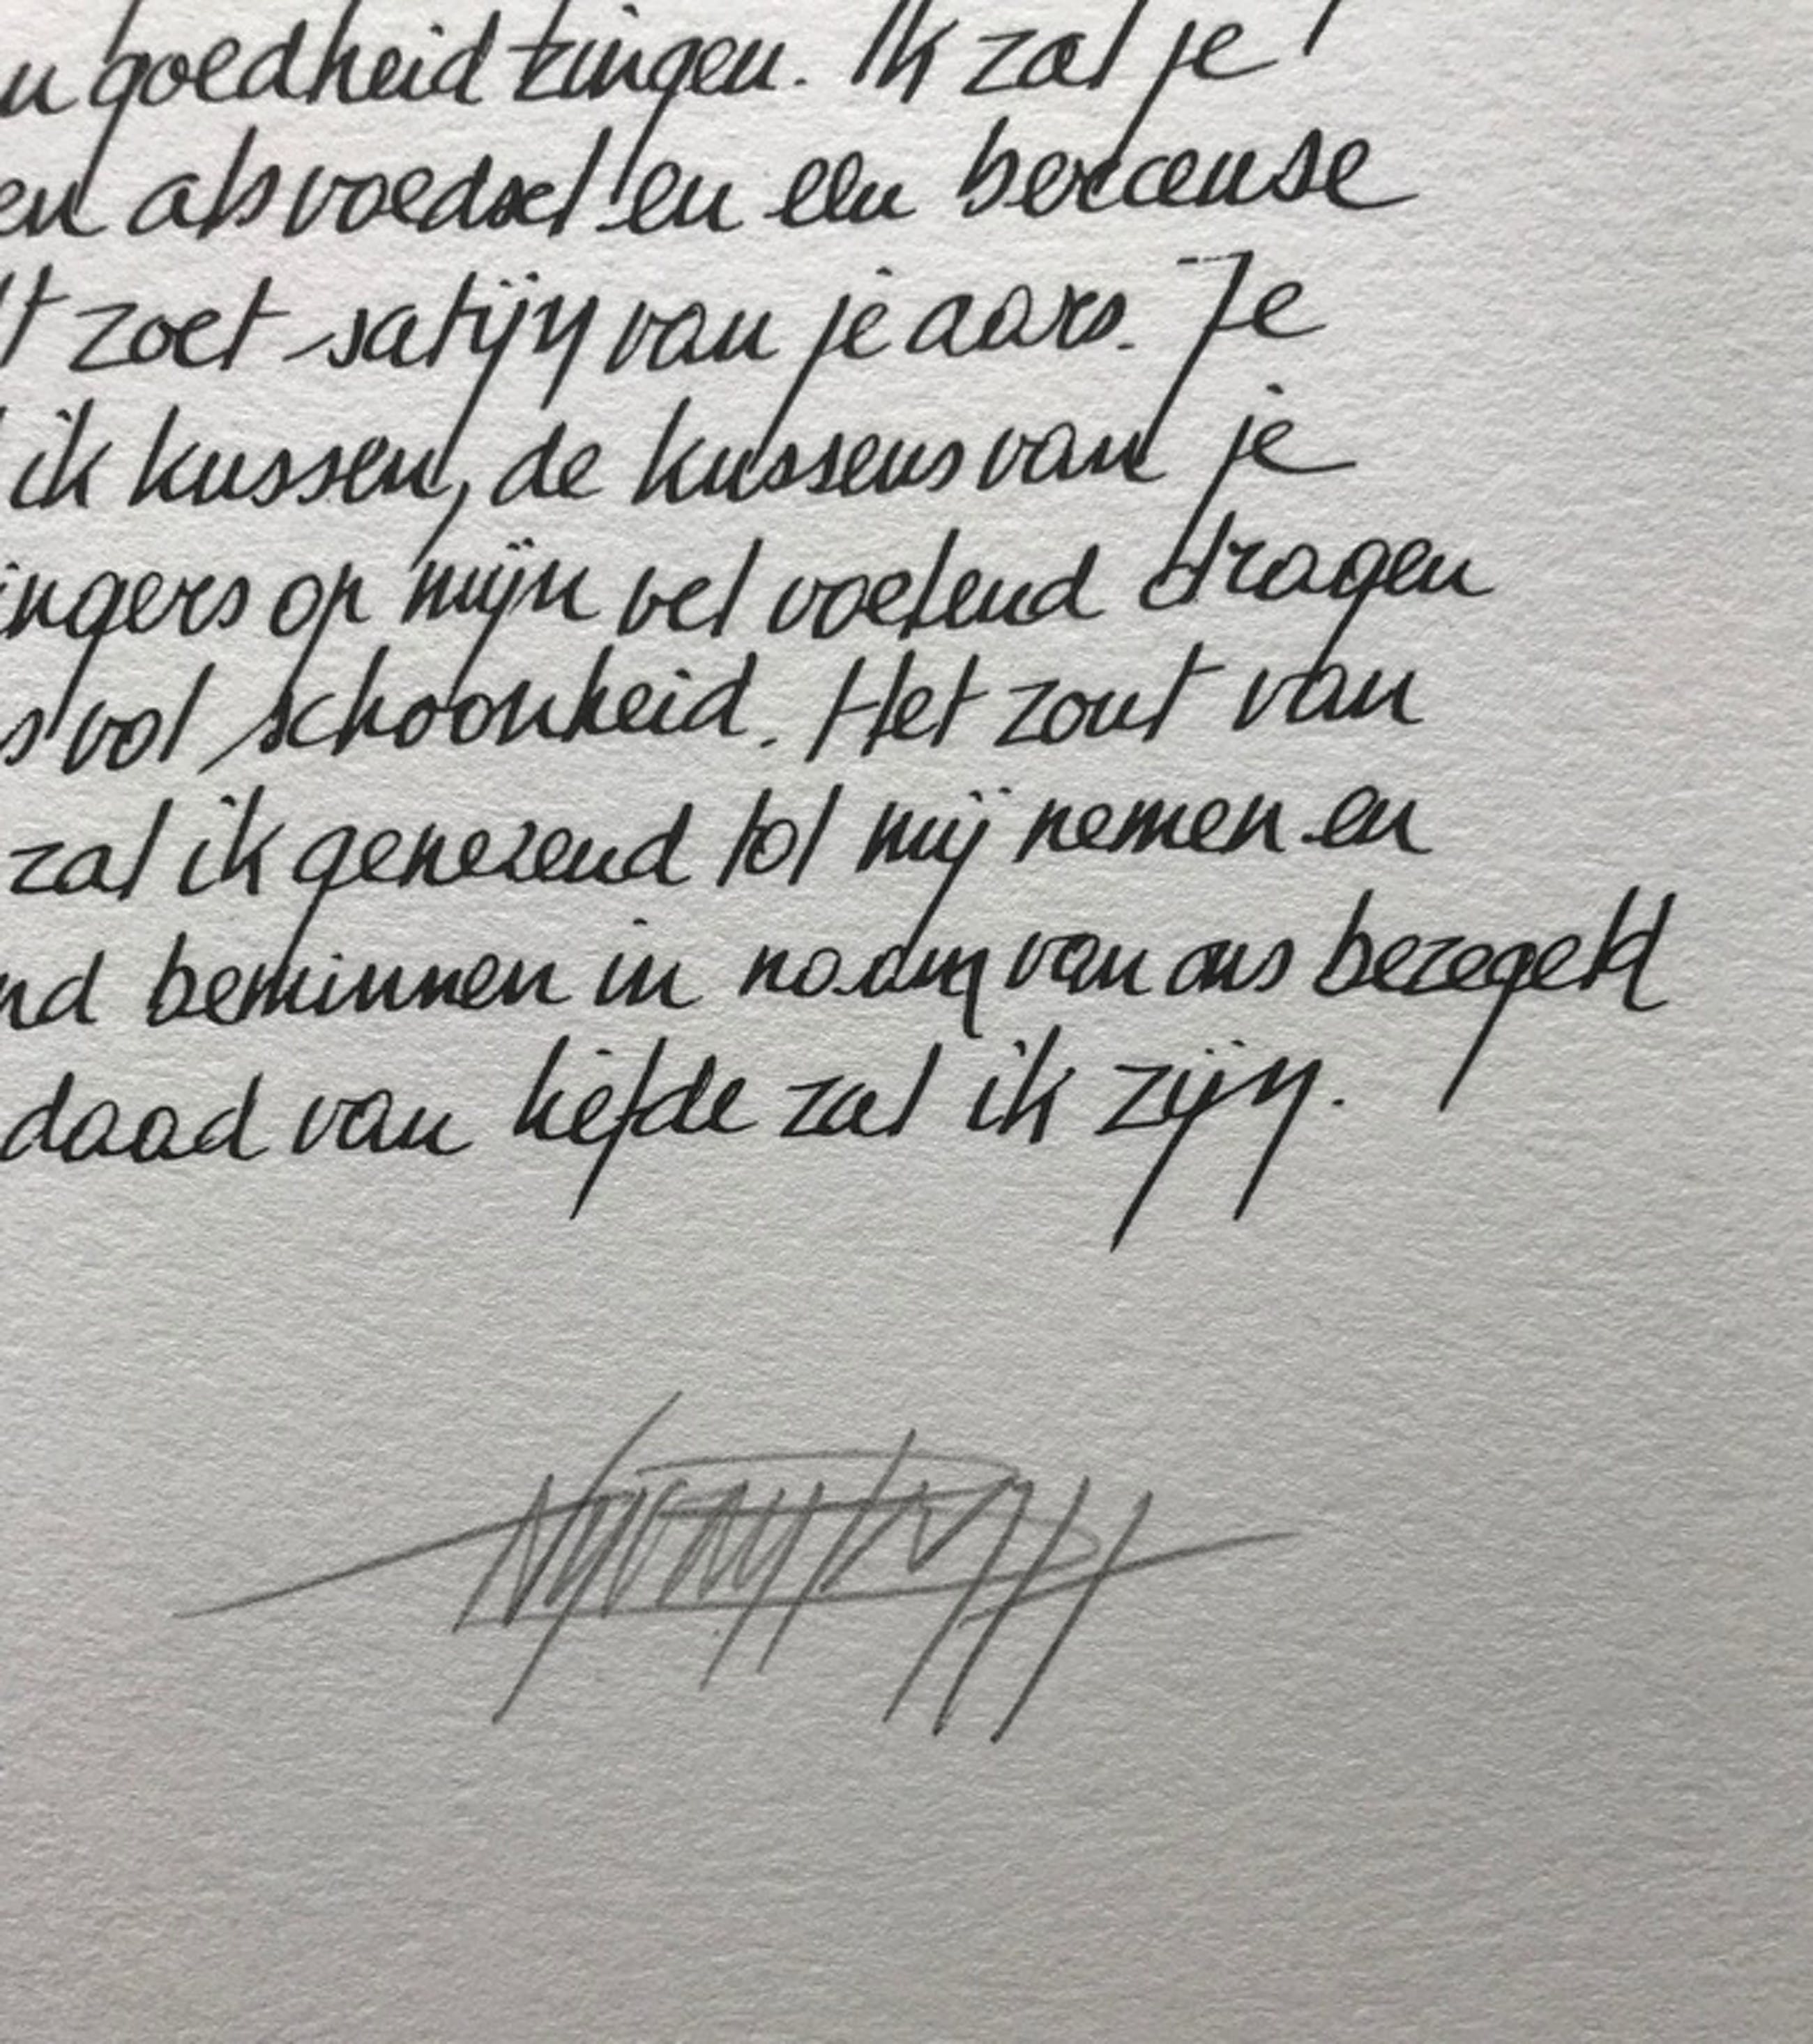 u goedheid zingen. Ik zal je
en als voedsel en een berceuse
t zoet satijn van je aars. Je
ik kussen, de kussens van je
ingers op mijn vel voelend dragen
s vol schoonheid. Het zout van
zal ik genezend tot mij nemen en
nd beminnen in naam van ons bezegeld
daad van liefde zal ik zijn.